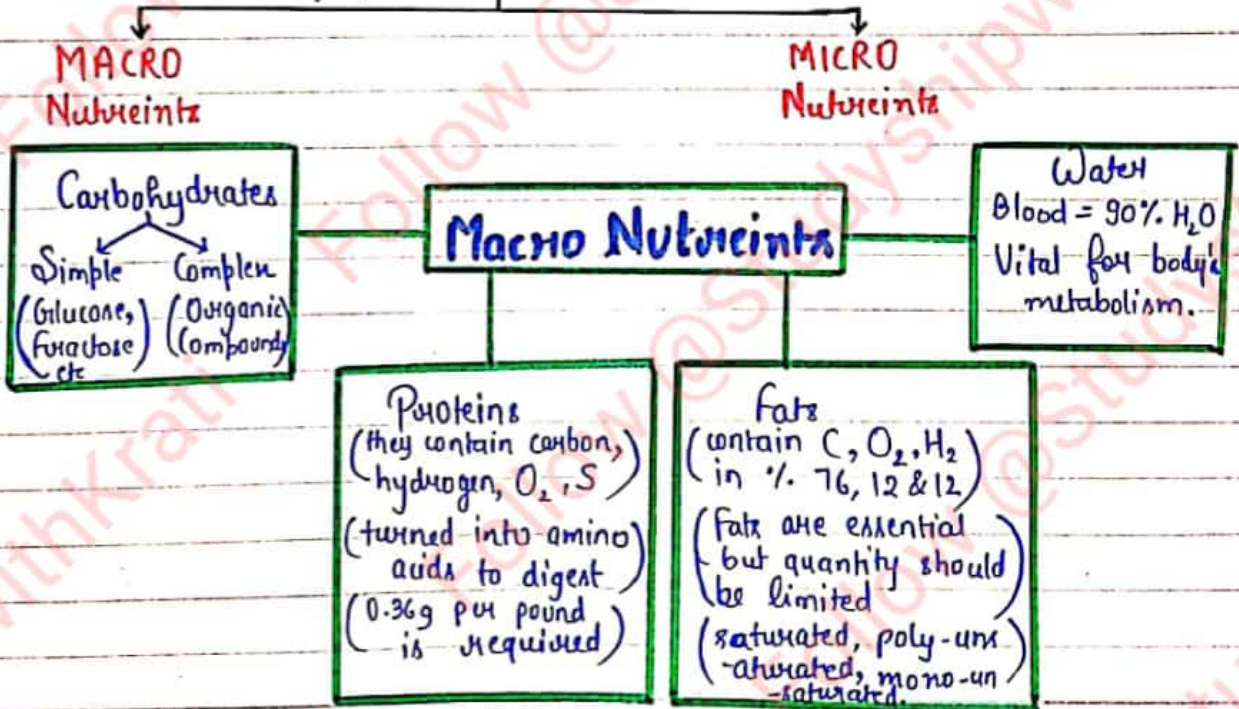 MACRO
Nutreints
MICRO
Nutreints
Carbohydrates
Simple Complex
(Glucose, Furactose etc)
(Organic Compounds)
Macro Nutreints
Water
Blood = 90% H₂O
Vital for body's
metabolism.
Proteins
(they contain carbon,
hydrogen, O₂, S)
(turned into amino
acids to digest)
(0.36g per pound
is required)
Fats
(contain C, O₂, H₂
in % 76, 12 & 12)
(Fats are essential
but quantity should
be limited)
(saturated, poly-uns
-aturated, mono-un
-saturated.
Follow @Studyshipw
withKrati
Follow @Studys
Follow @Study